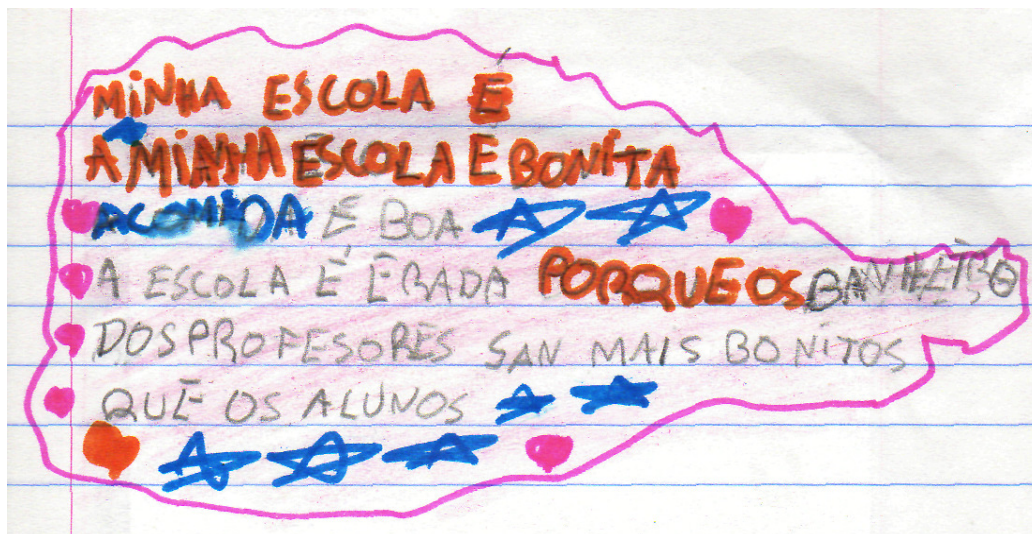 MINHA ESCOLA É
A MINHA ESCOLA E BONITA
ACOMIDA É BOA
A ESCOLA É ERADA PORQUE OS BANHEIRO
DOS PROFESORES SAN MAIS BONITOS
QUE OS ALUNOS